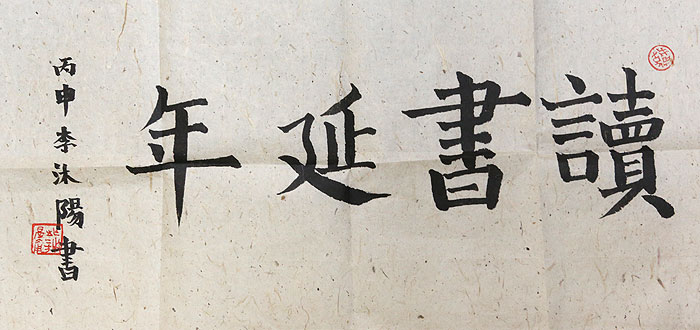 讀書延年
丙申李沐陽書